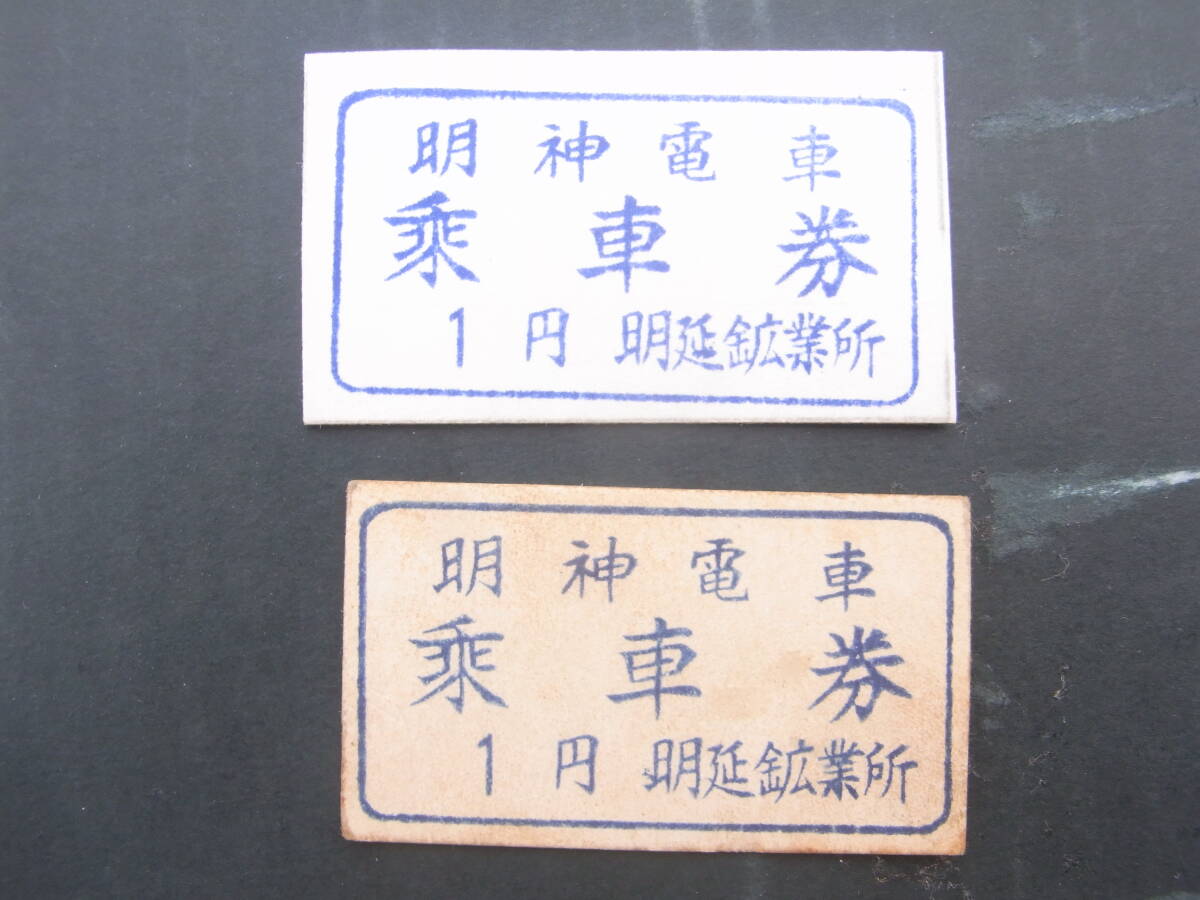 明神電車
乗車券
1円 明延鉱業所
明神電車
乗車券
1円 明延鉱業所